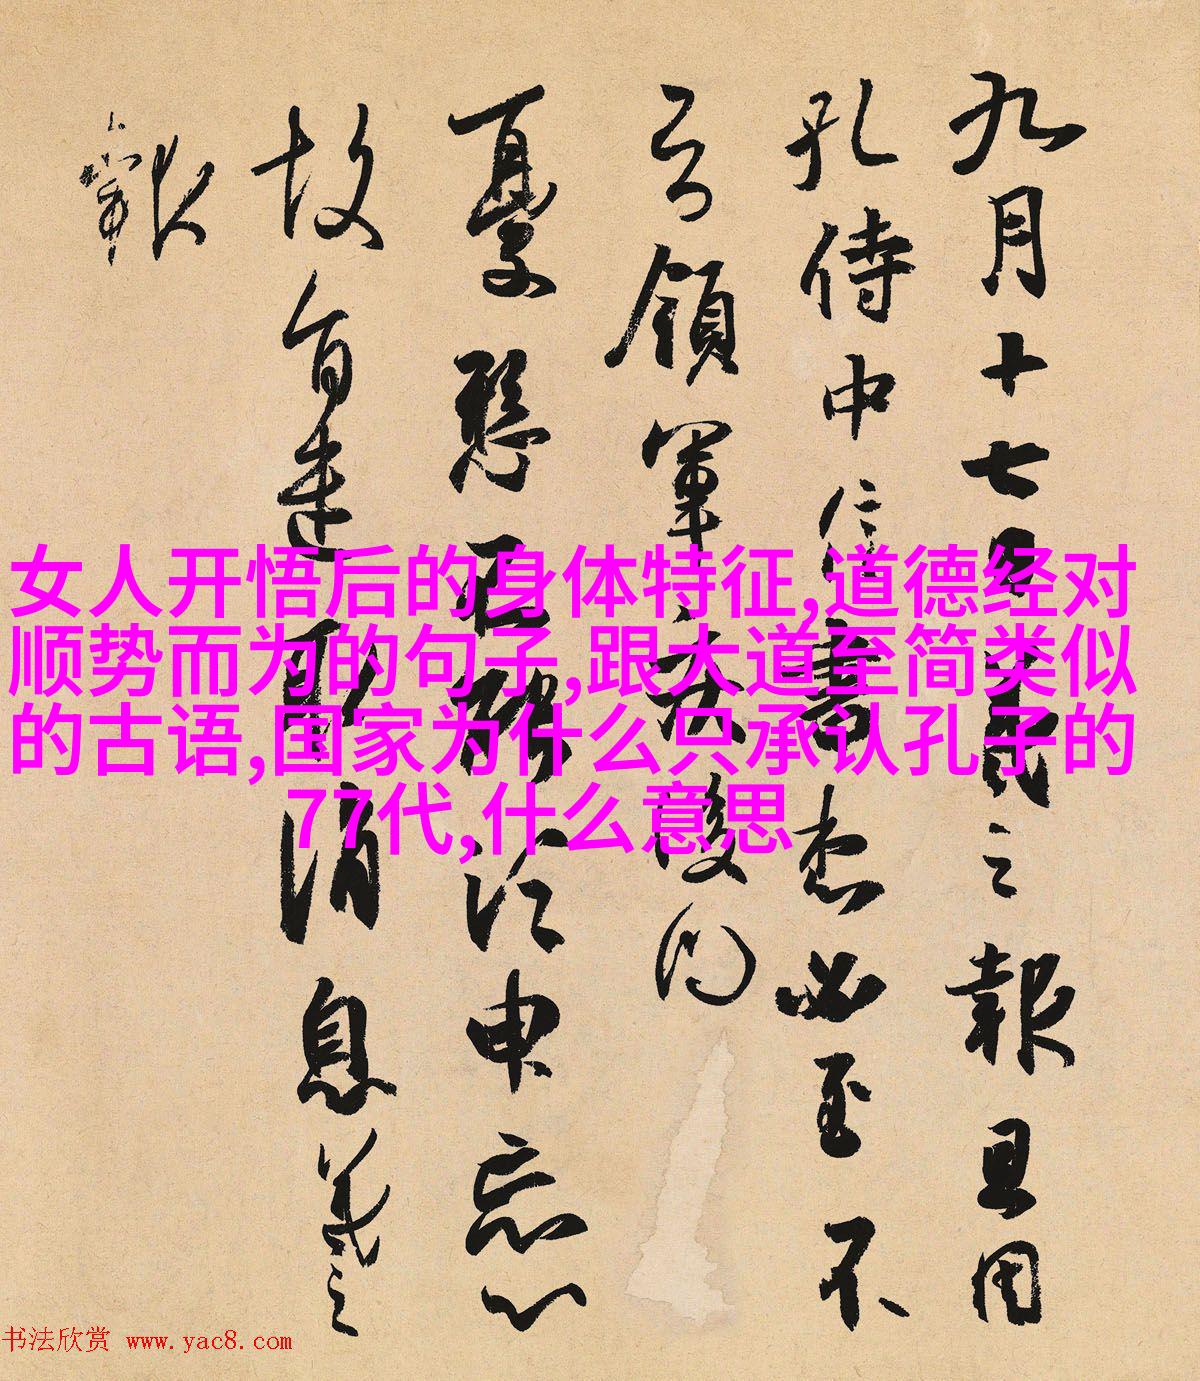 九月十七日羲之報且因
孔侍中信書想必至不
知領軍疾後問
憂懸不能須臾忘心
故旨遣取消息羲之
報
女人开悟后的身体特征,道德经对
顺势而为的句子,跟大道至简类似
的古语,国家为什么只承认孔子的
77代,什么意思
书法欣赏 www.yac8.com